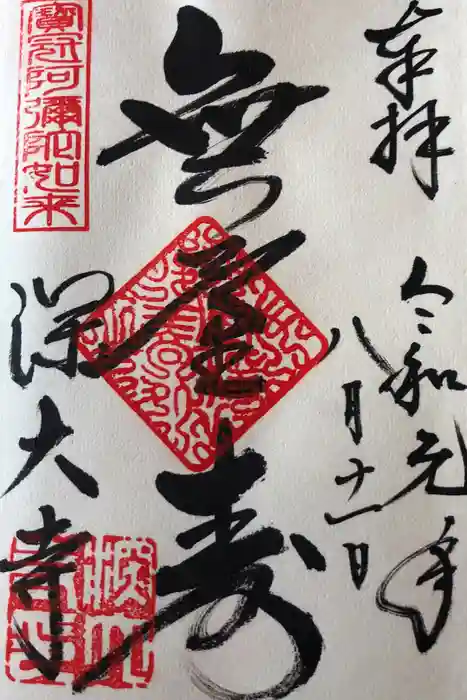 奉拝
令和元年
八月十一日
無量寿
寳冠阿彌陀如来
深大寺